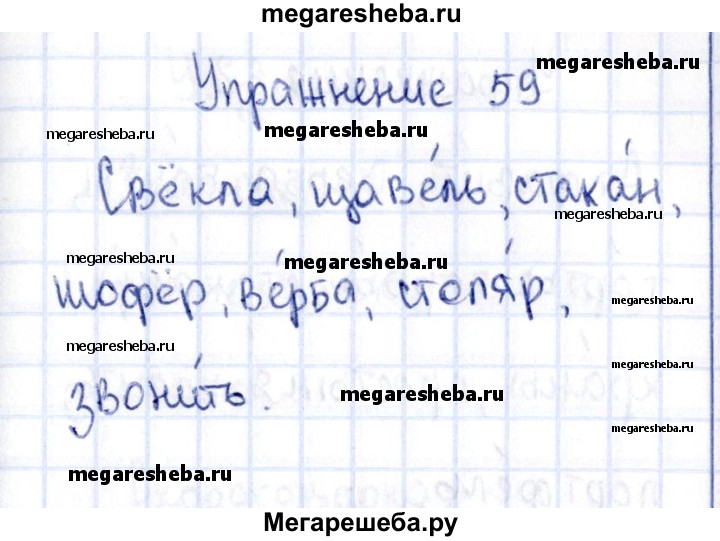 megaresheba.ru
megaresheba.ru
Упражнение 59
megaresheba.ru
megaresheba.ru
Свёкла, щаве́ль, стака́н,
megaresheba.ru
megaresheba.ru
megaresheba.ru
шофёр, ве́рба, столя́р,
megaresheba.ru
megaresheba.ru
megaresheba.ru
звони́ть.
megaresheba.ru
megaresheba.ru
megaresheba.ru
Мегарешеба.ру